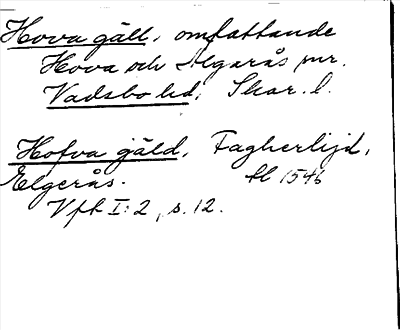 Hova gäll, omfattande
Hova och Älgarås snr.
Vadsbo hd, Skar. l.
Hofva gäld, Fagherlijd,
Elgerås. tl 1546
Vfk I:2, s. 12.